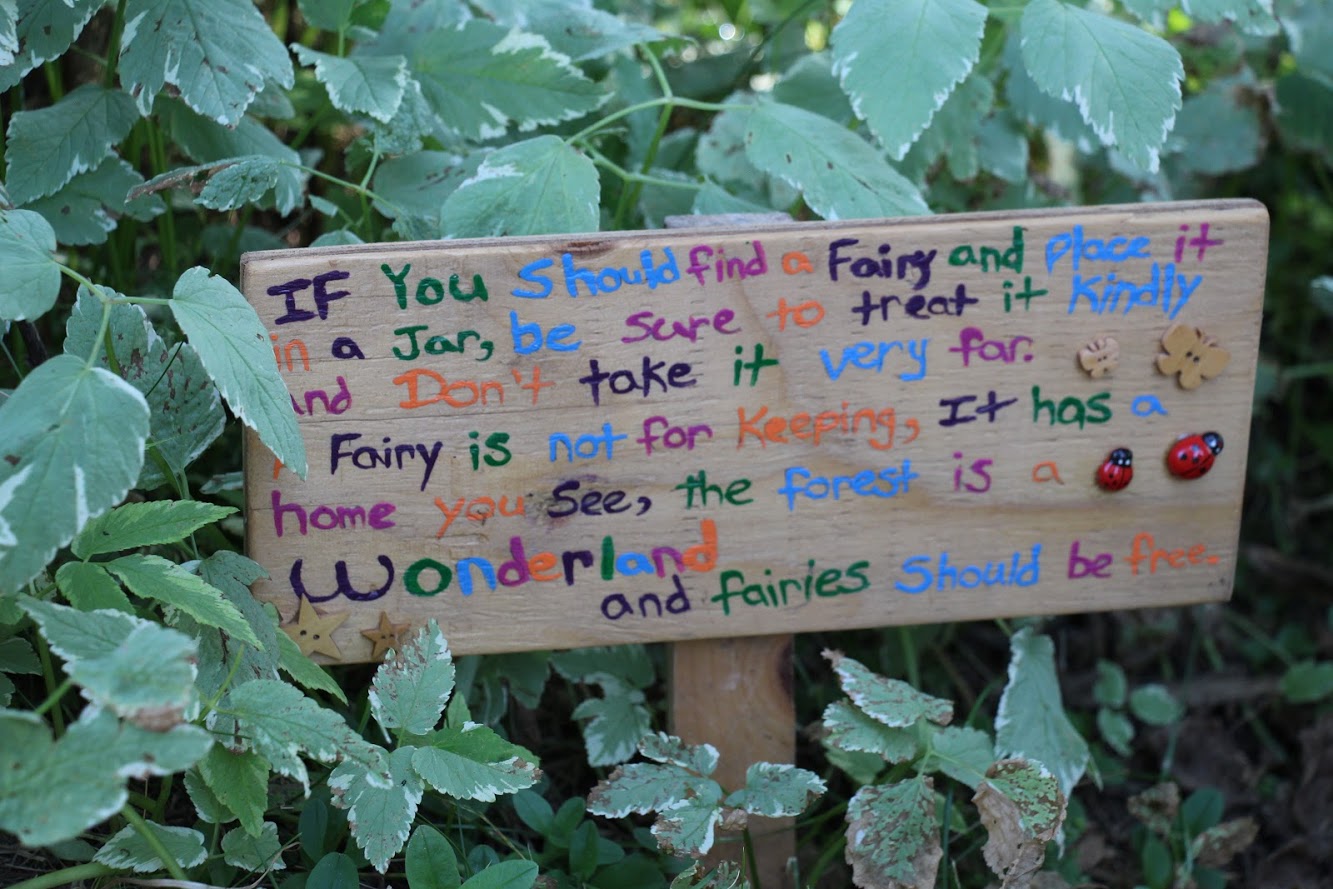 IF You Should find a Fairy and place it
in a Jar, be sure to treat it Kindly
And Don't take it very far.
A Fairy is not for Keeping, It has a
home you See, the forest is a
Wonderland
and fairies Should be free.